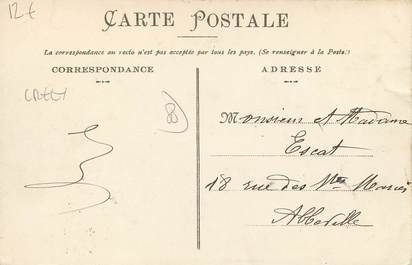 12 €
CARTE POSTALE
La correspondance au recto n'est pas acceptée par tous les pays. (Se renseigner à la Poste.)
CORRESPONDANCE
ADRESSE
CRECY
80
Monsieur et Madame
Escat
18 rue des
Abbeville